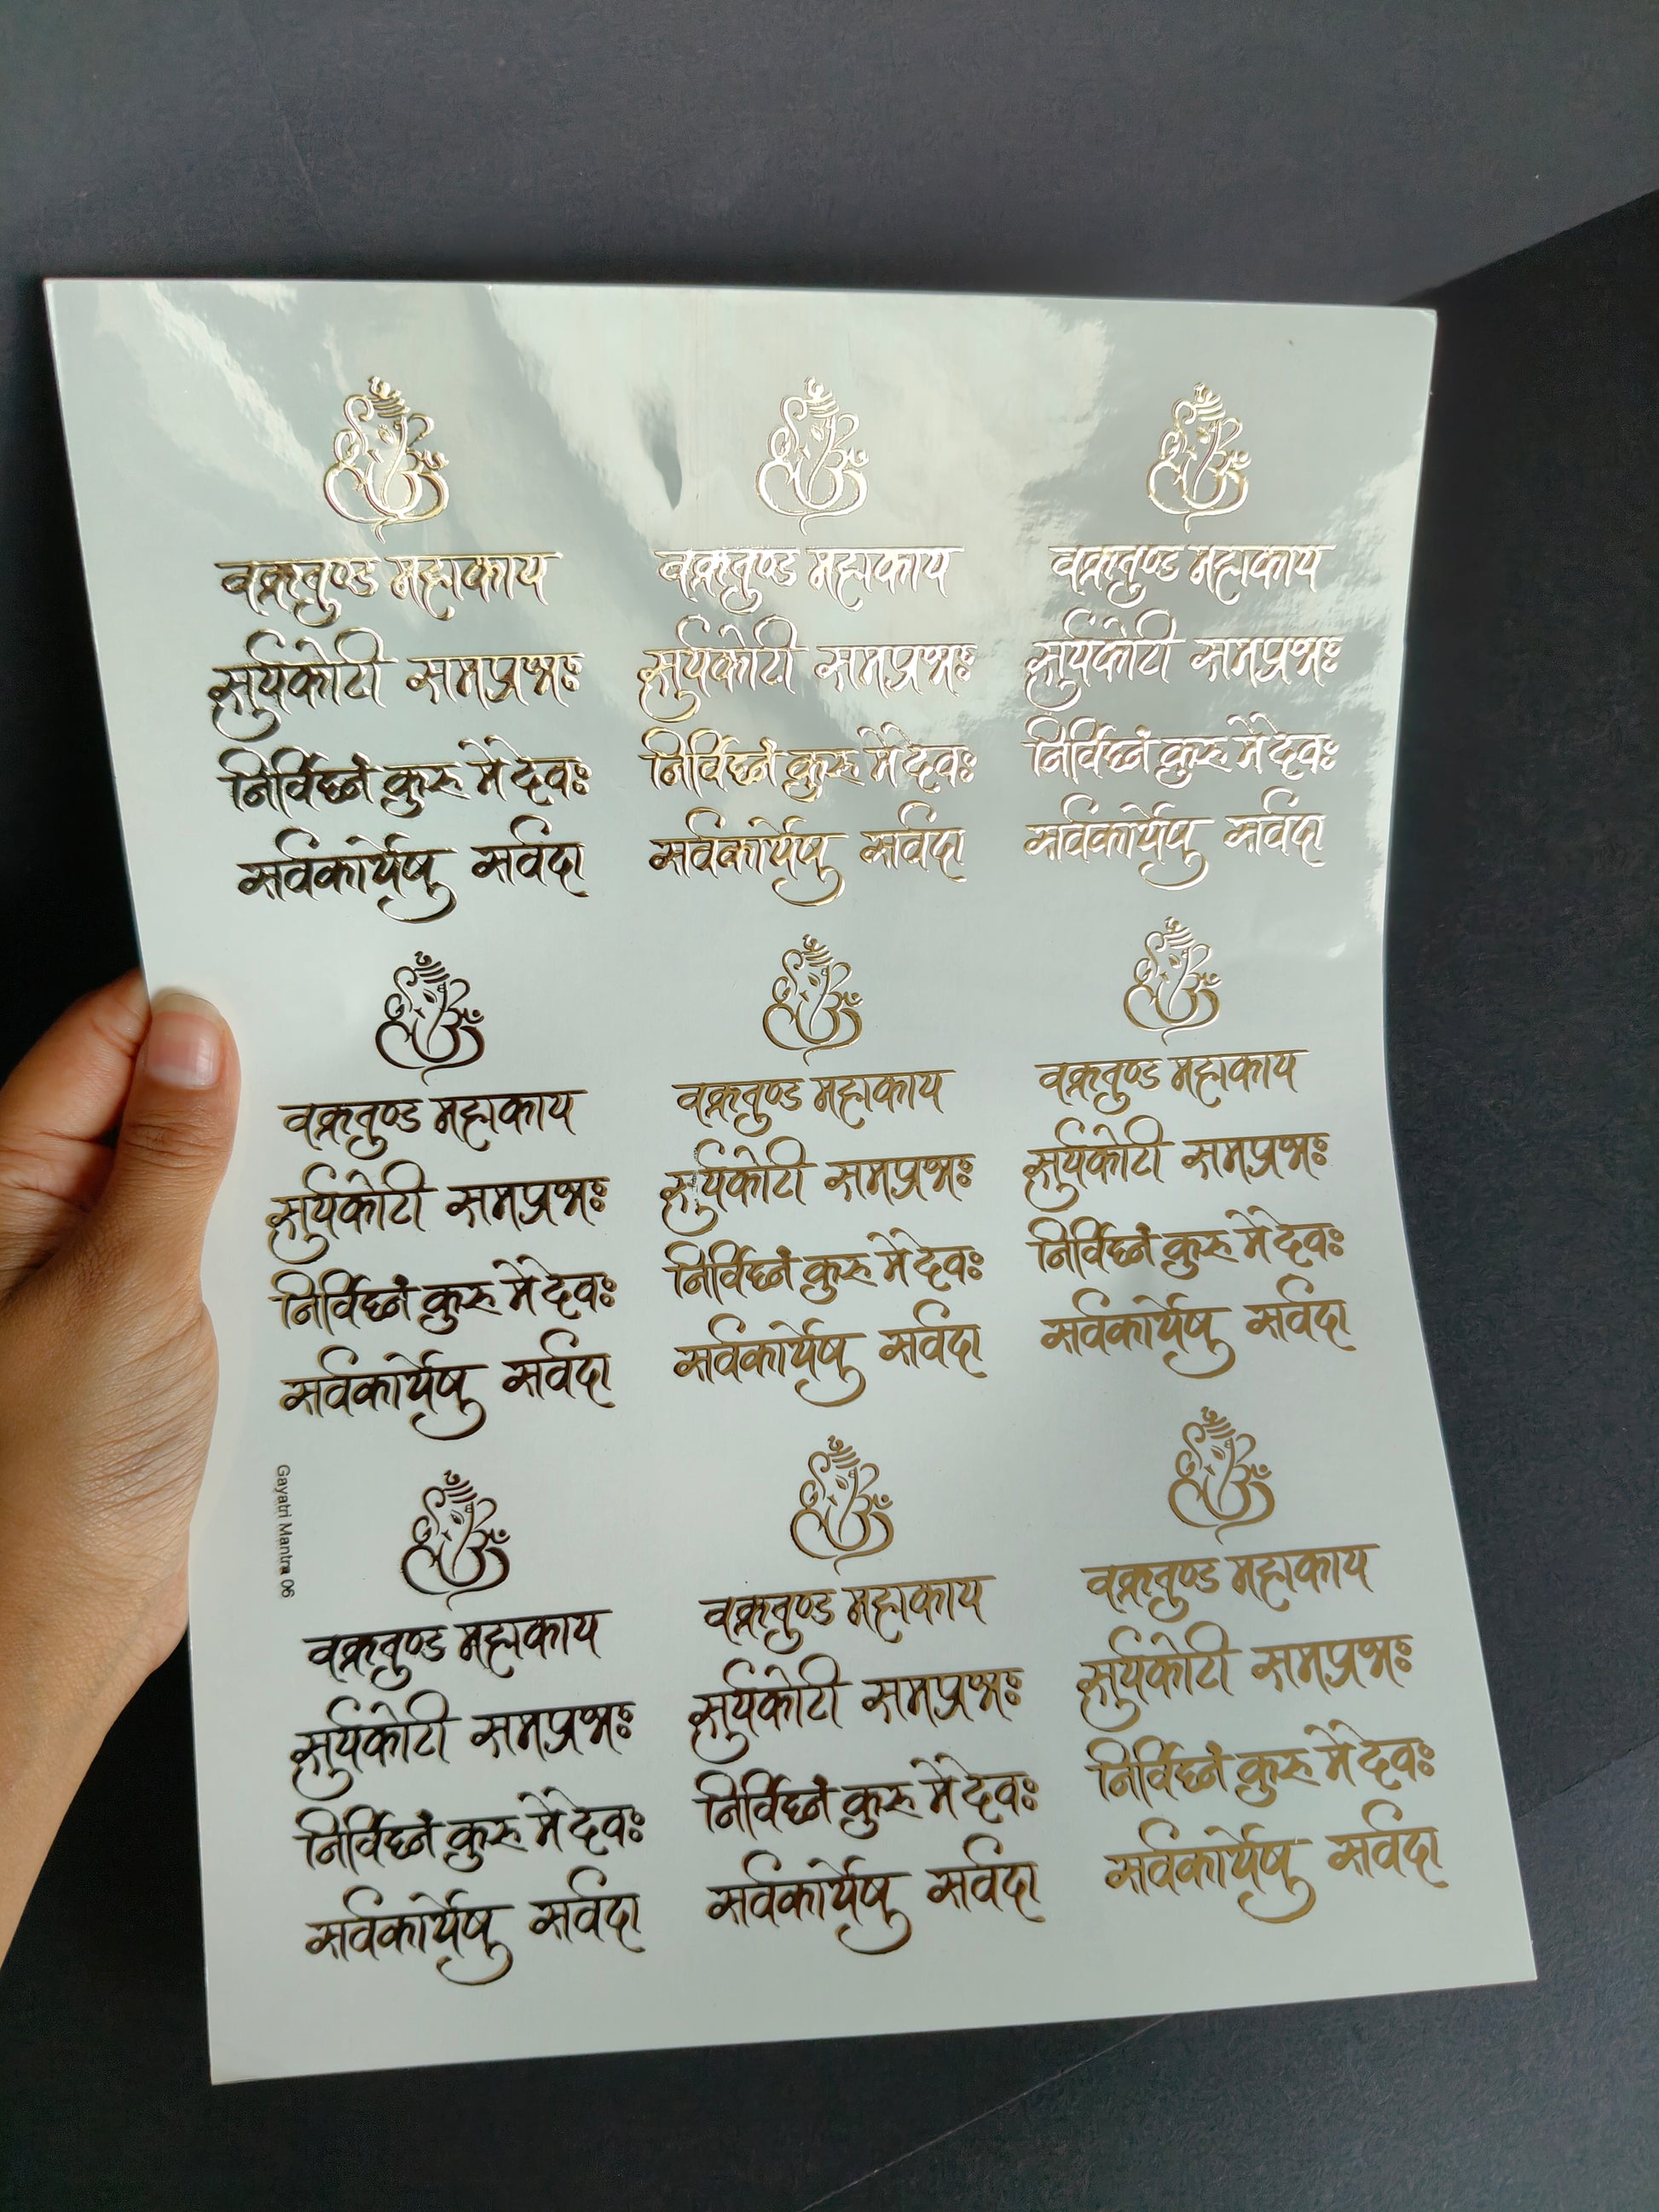 वक्रतुण्ड महाकाय
सुर्यकोटी समप्रभः
निर्विघ्नं कुरु मे देवः
सर्वकार्येषु सर्वदा
वक्रतुण्ड महाकाय
सुर्यकोटी समप्रभः
निर्विघ्नं कुरु मे देवः
सर्वकार्येषु सर्वदा
वक्रतुण्ड महाकाय
सुर्यकोटी समप्रभः
निर्विघ्नं कुरु मे देवः
सर्वकार्येषु सर्वदा
वक्रतुण्ड महाकाय
सुर्यकोटी समप्रभः
निर्विघ्नं कुरु मे देवः
सर्वकार्येषु सर्वदा
वक्रतुण्ड महाकाय
सुर्यकोटी समप्रभः
निर्विघ्नं कुरु मे देवः
सर्वकार्येषु सर्वदा
वक्रतुण्ड महाकाय
सुर्यकोटी समप्रभः
निर्विघ्नं कुरु मे देवः
सर्वकार्येषु सर्वदा
Gayatri Mantra 06
वक्रतुण्ड महाकाय
सुर्यकोटी समप्रभः
निर्विघ्नं कुरु मे देवः
सर्वकार्येषु सर्वदा
वक्रतुण्ड महाकाय
सुर्यकोटी समप्रभः
निर्विघ्नं कुरु मे देवः
सर्वकार्येषु सर्वदा
वक्रतुण्ड महाकाय
सुर्यकोटी समप्रभः
निर्विघ्नं कुरु मे देवः
सर्वकार्येषु सर्वदा